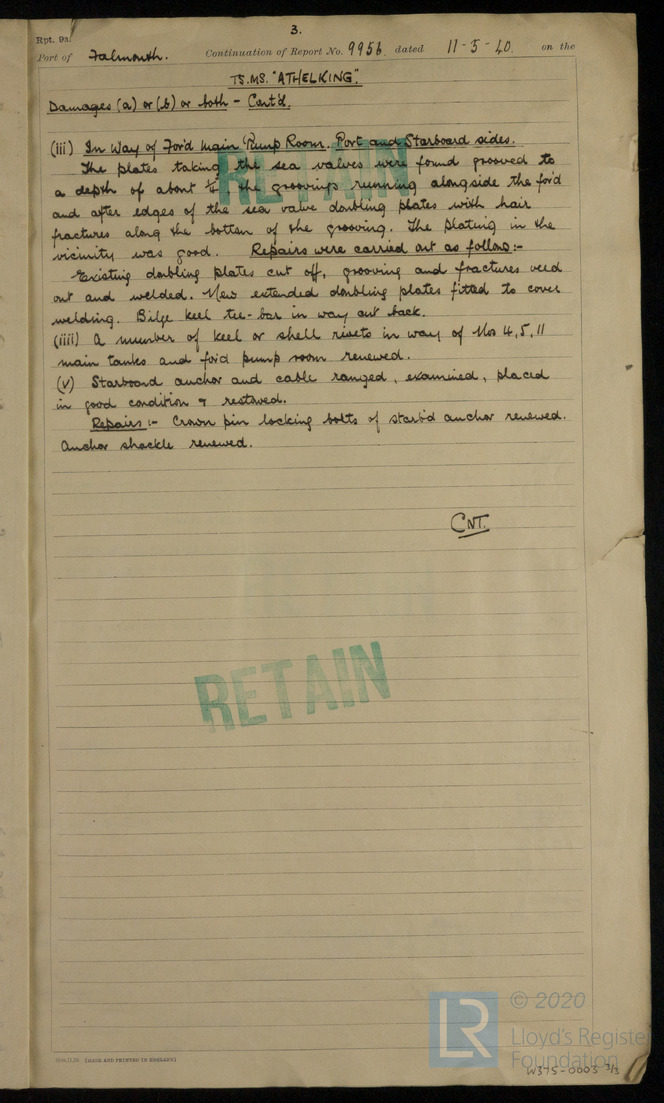 3.
Rpt. 9a.
Port of Falmouth. Continuation of Report No. 9956 dated 11-5-40 on the
TS.MS. "ATHELKING."
Damages (a) or (b) or both - Cont'd.
(iii) In Way of For'd Main Pump Room. Port and Starboard sides.
The plates taking the sea valves were found grooved to
a depth of about ¼", the groovings running alongside the for'd
and after edges of the sea valve doubling plates with hair
fractures along the bottom of the grooving. The plating in the
vicinity was good. Repairs were carried out as follows:-
Existing doubling plates cut off, grooving and fractures veed
out and welded. New extended doubling plates fitted to cover
welding. Bilge keel tee-bar in way cut back.
(iiii) A number of keel or shell rivets in way of Nos 4, 5, 11
main tanks and for'd pump room renewed.
(v) Starboard anchor and cable ranged, examined, placed
in good condition & restowed.
Repairs:- Crown pin locking bolts of starb'd anchor renewed.
Anchor shackle renewed.
CNT.
RETAIN
RETAIN
(MADE AND PRINTED IN ENGLAND)
LR © 2020
Lloyd's Register
Foundation
W375-0003 3/3